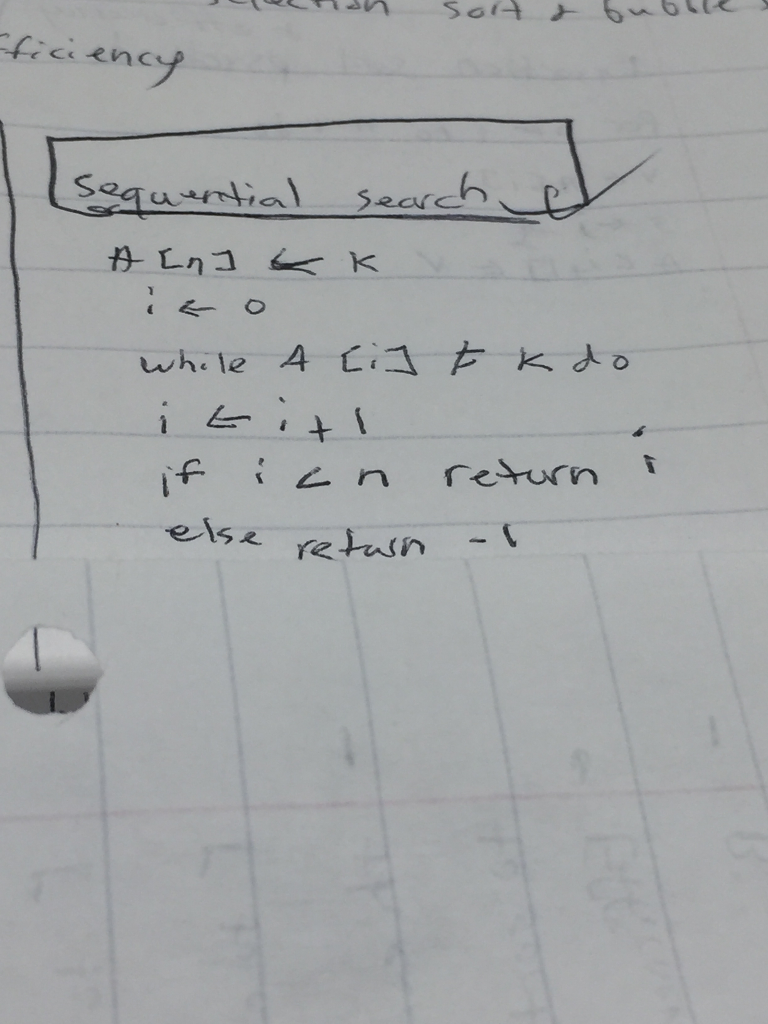 selection sort & bubble
fficiency
sequential search
A [n] ← K
i ← 0
while A [i] ≠ K do
i ← i + 1
if i < n return i
else return -1